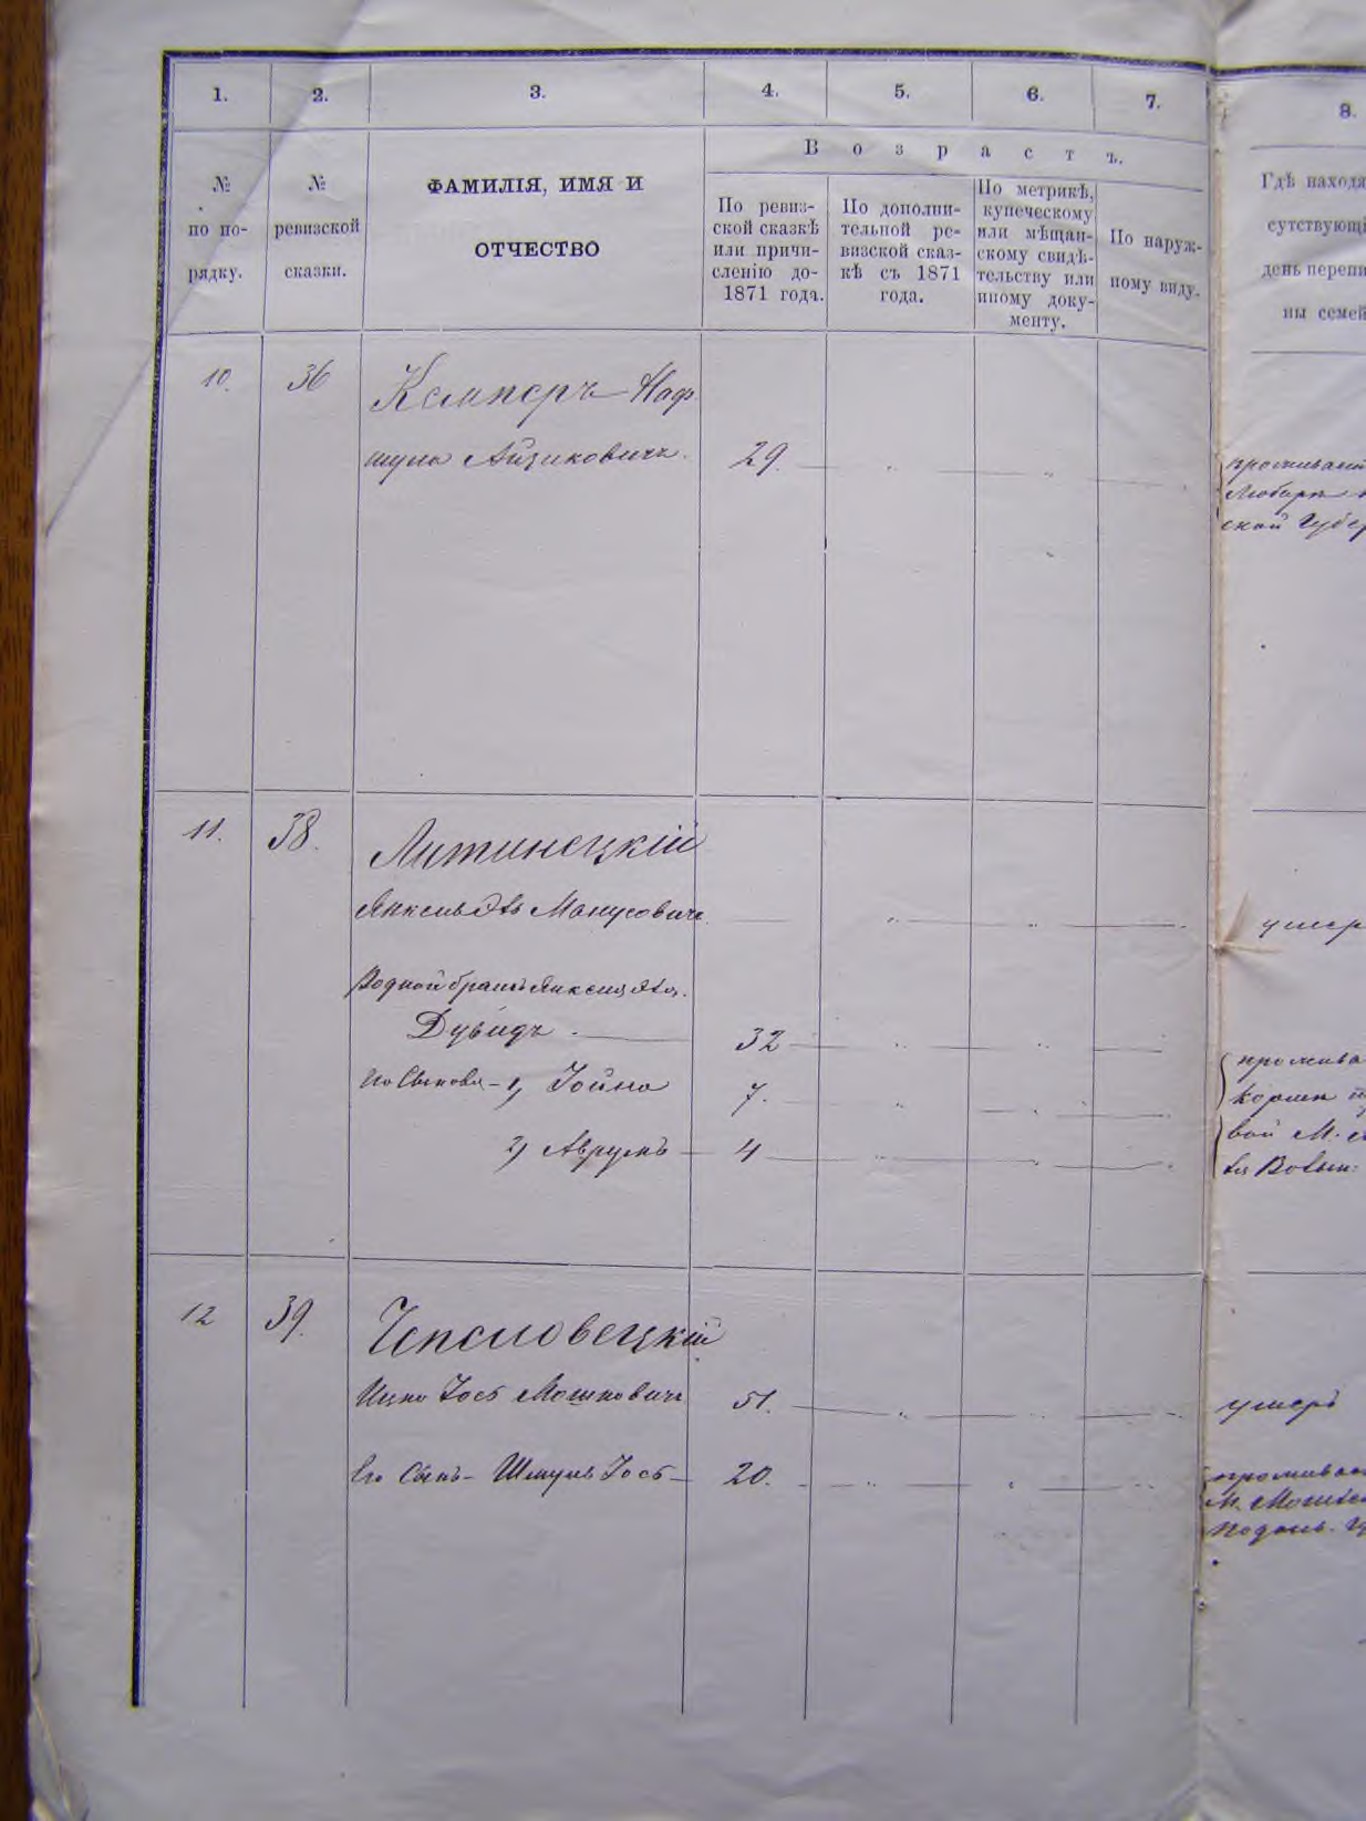 1. 2. 3. 4. 5. 6. 7. 8.
№
по по-
рядку.
№
ревизской
сказки.
ФАМИЛІЯ, ИМЯ И
ОТЧЕСТВО
Возрастъ.
По ревиз-
ской сказкѣ
или причи-
сленію до-
1871 года.
По дополни-
тельной ре-
визской сказ-
кѣ съ 1871
года.
По метрикѣ,
купеческому
или мѣщан-
скому свидѣ-
тельству или
иному доку-
менту.
По наруж-
ному виду.
Гдѣ находя
сутствующі
день переп
ны семей
10. 36 Кемперъ Наф
тула Айзиковичъ. 29.
проживает
Любарѣ
ской Губер
11. 38. Литинецкій
Янкель Эль Манусовичъ
умер
Родной братъ Янкеля Эля.
Дувидъ 32
Его Сыновья - 1) Іойна 7.
2) Аврумъ 4
прожива
вой М.
Волын
12 39. Чепеловецкій
Ицко Іось Мошковичъ 51.
умеръ
Его Сынъ - Шмуль Іось 20.
проживае
М.
Подоль.